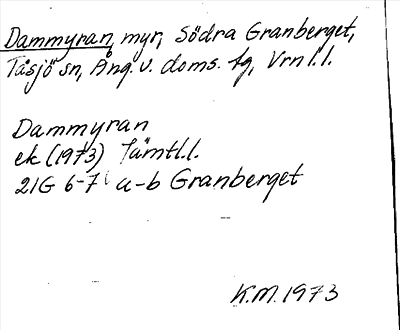 Dammyran, myr, Södra Granberget,
Tåsjö sn, Ång. v. doms. tg, Vrnl.l.
Dammyran
ek (1973) Jämtl.l.
21G 6-7 a-b Granberget
K.M. 1973